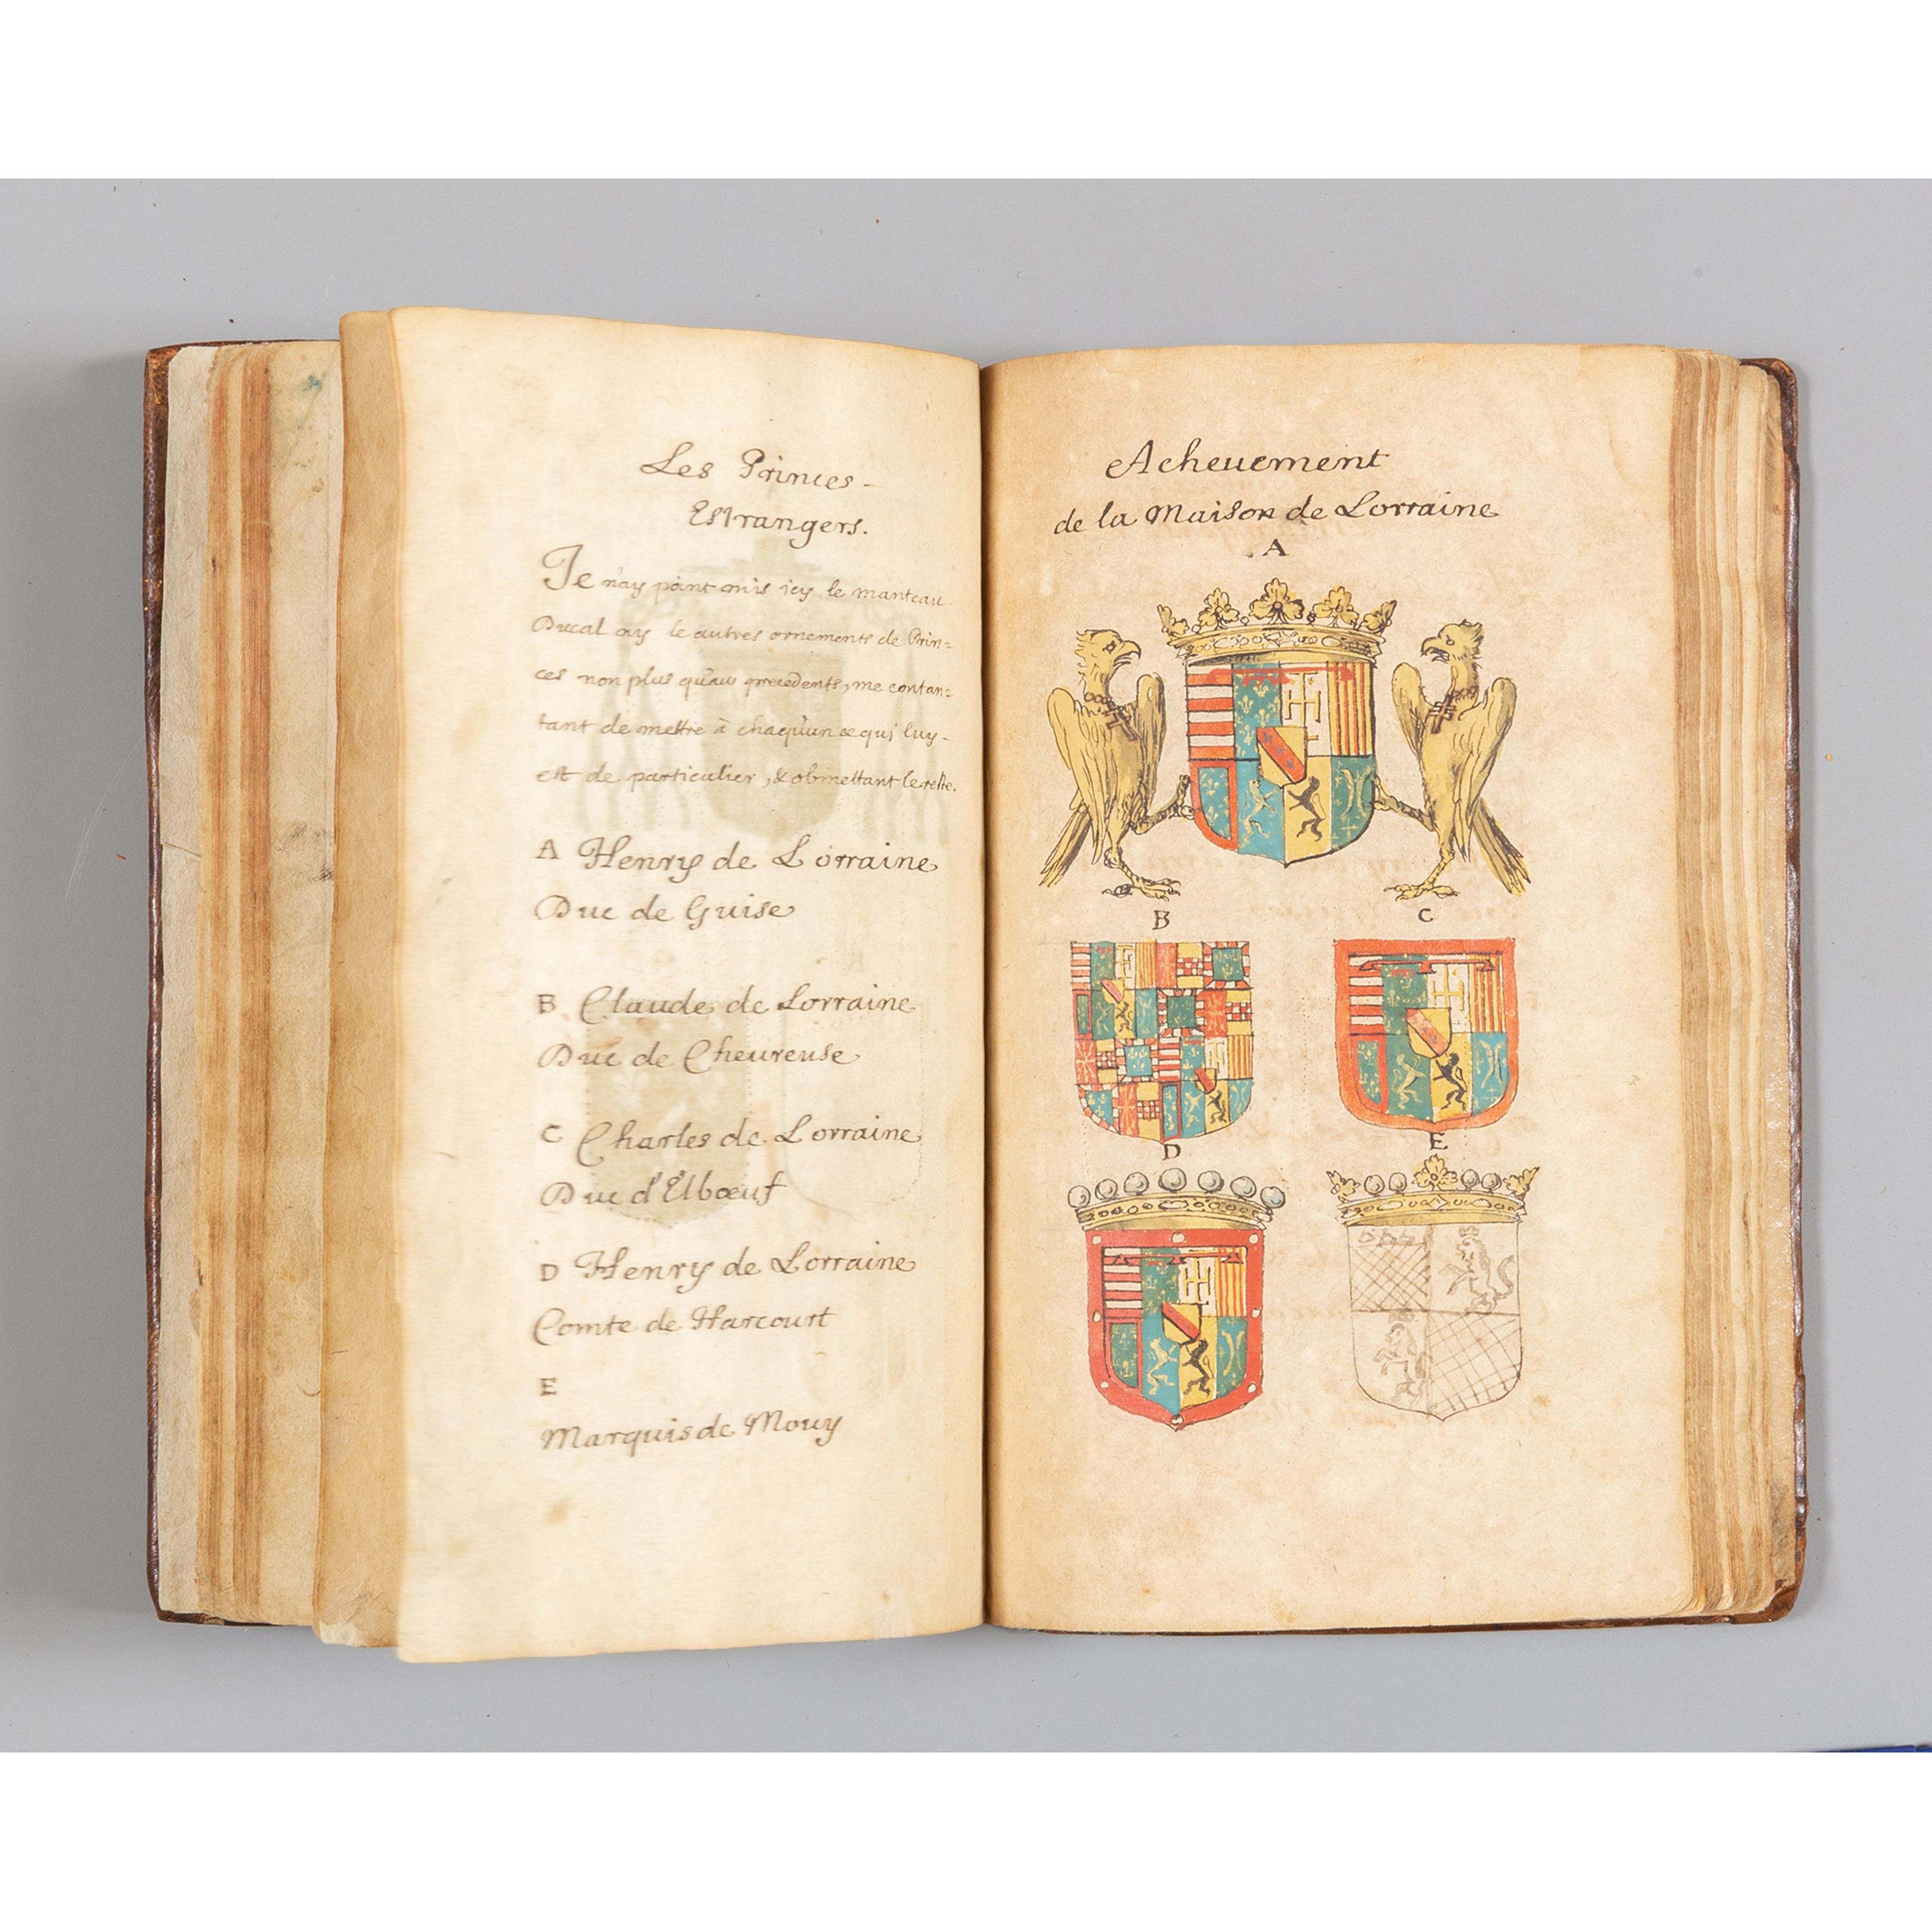 Les Princes
Estrangers.
Je n'ay point mis icy le manteau
Ducal ny le autres ornements de Prin=
ces non plus qu'au precedents, me contan=
tant de mettre à chaqu'un ce qui luy
est de particulier, & obmettant le reste.
A Henry de Lorraine
Duc de Guise
B Claude de Lorraine
Duc de Cheureuse
C Charles de Lorraine
Duc d'Elbœuf
D Henry de Lorraine
Comte de Harcourt
E
Marquis de Mouy
Acheuement
de la Maison de Lorraine
A
B C
D E